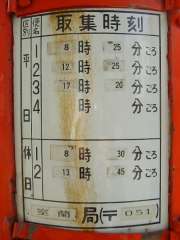 区別 便名 取集時刻
平日 1 8時25分ごろ
2 12時25分ごろ
3 17時20分ごろ
4
休日 1 8時30分ごろ
2 13時45分ごろ
室蘭局(〒051)